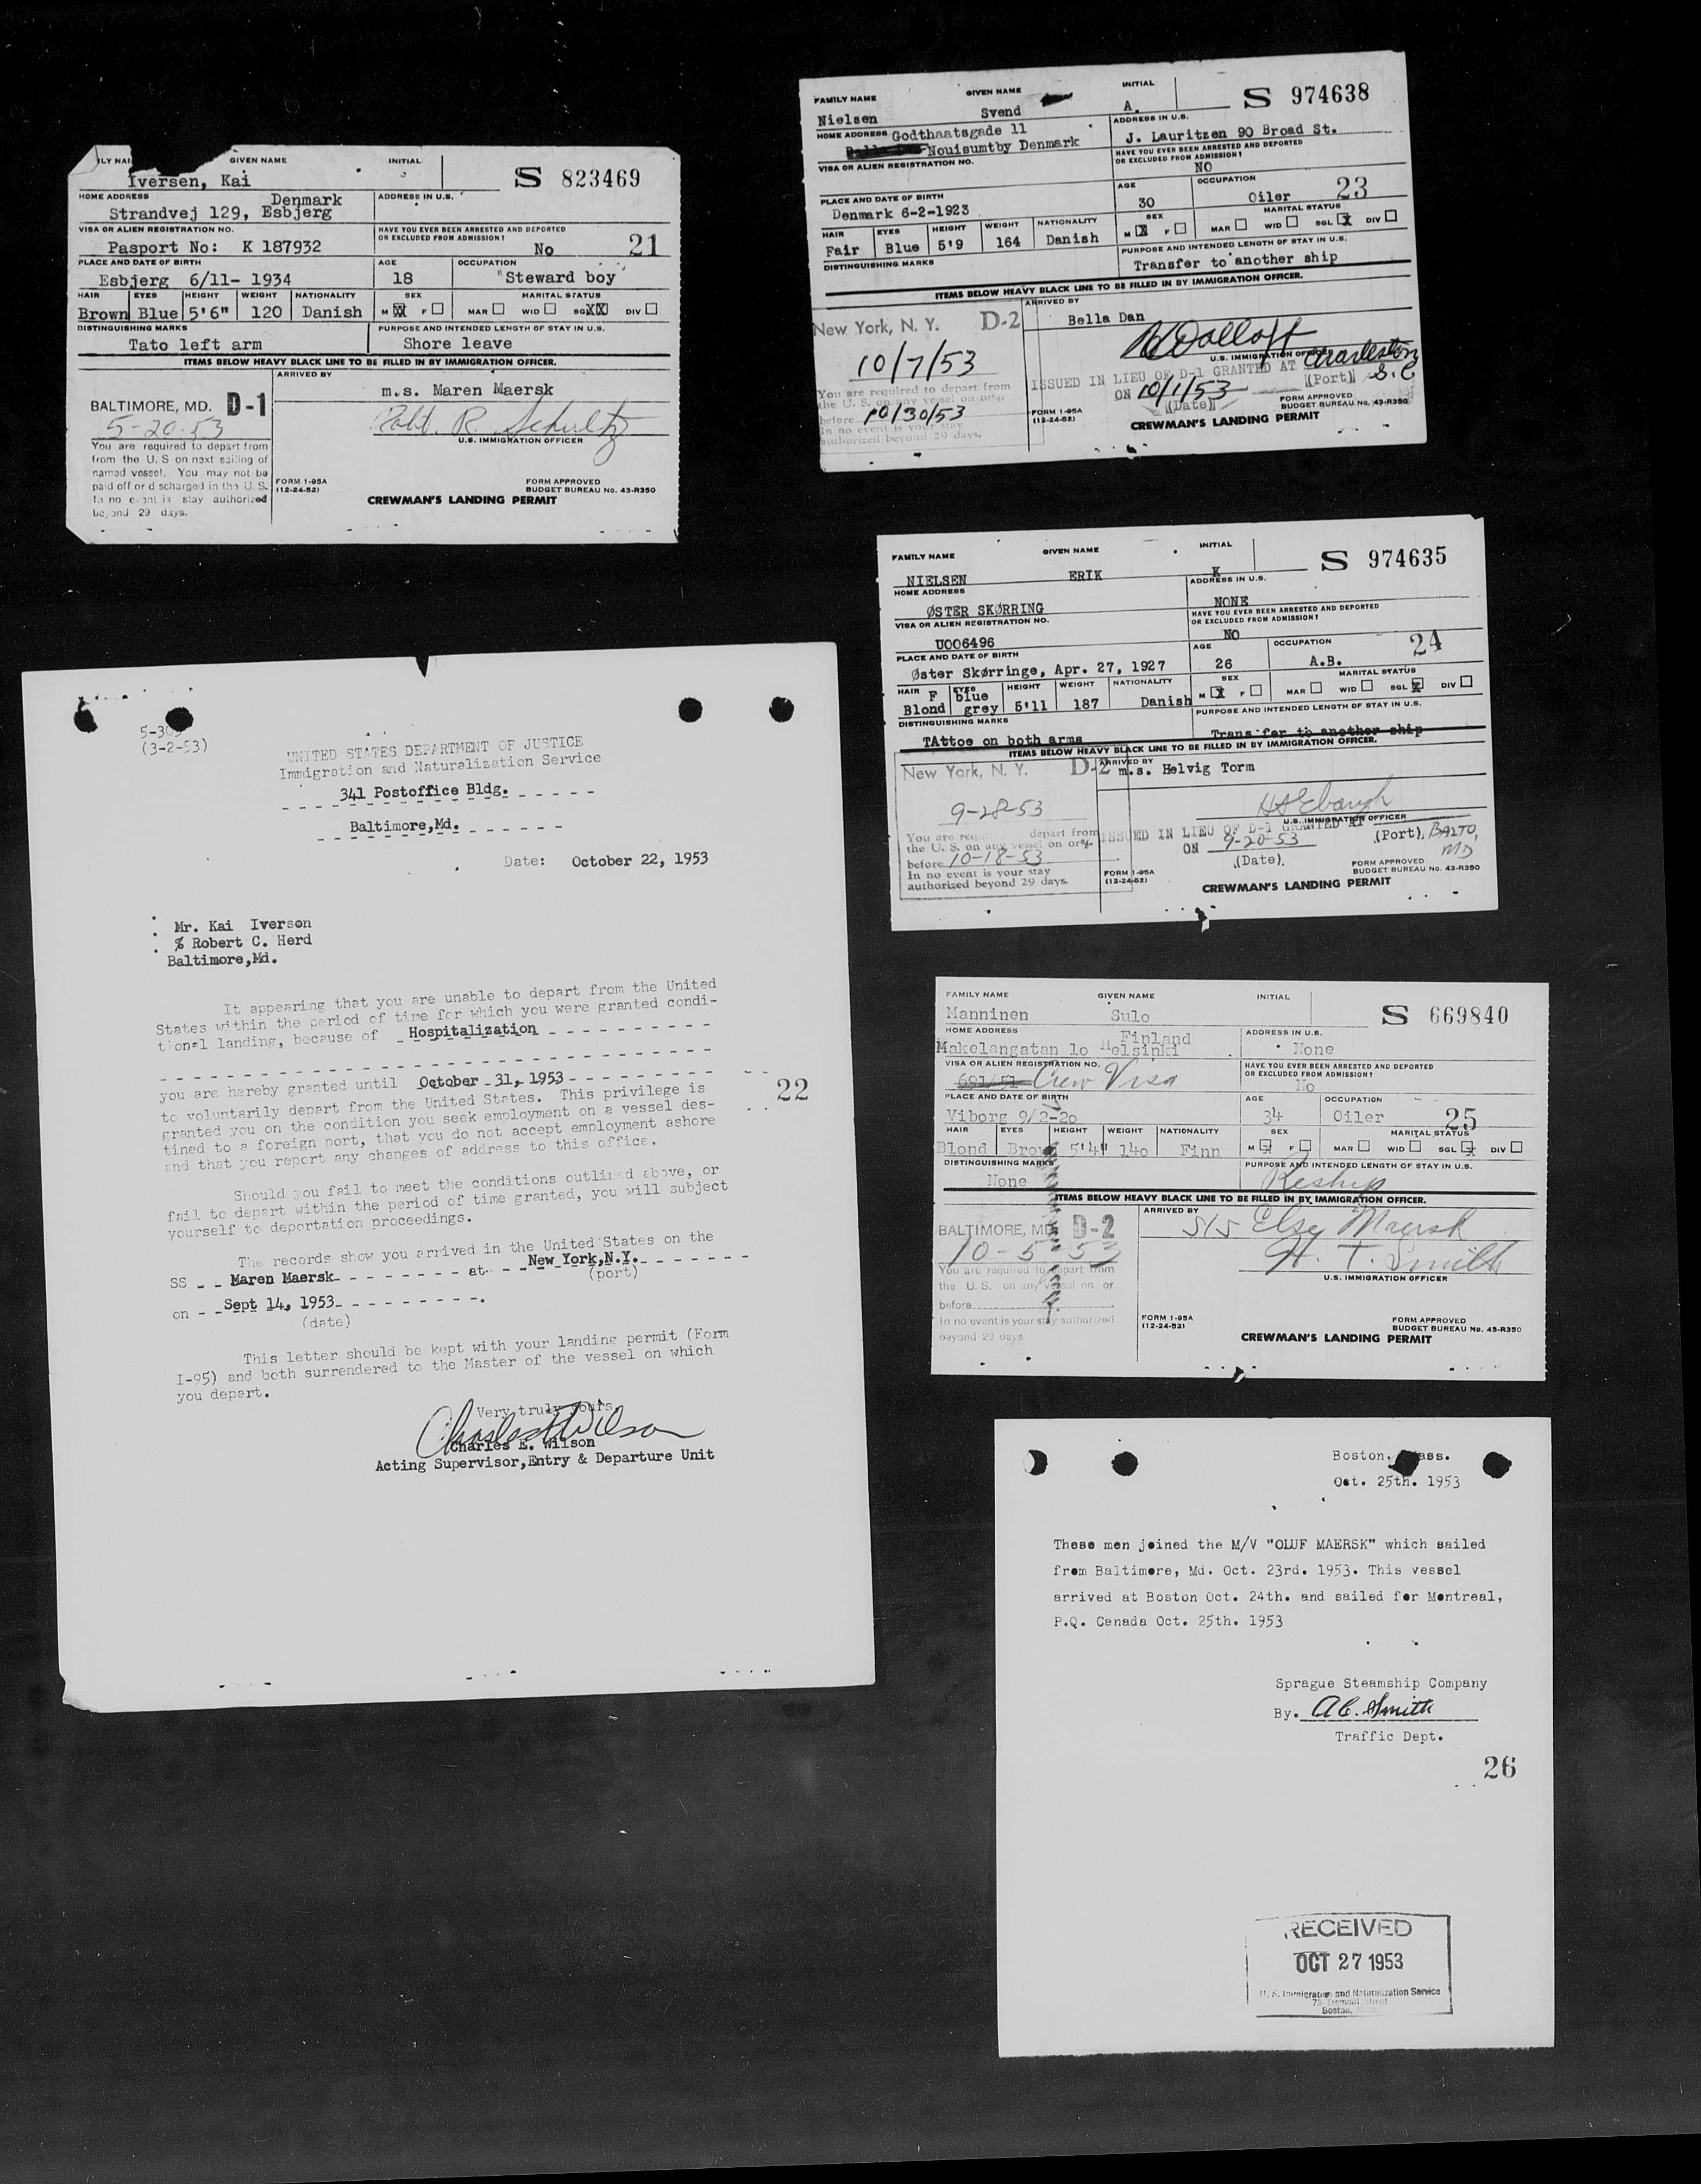 FAMILY NAME GIVEN NAME INITIAL
Iversen, Kai
S 823469
HOME ADDRESS ADDRESS IN U.S.
Denmark
Strandvej 129, Esbjerg
VISA OR ALIEN REGISTRATION NO. HAVE YOU EVER BEEN ARRESTED AND DEPORTED
OR EXCLUDED FROM ADMISSION?
Pasport No: K 187932 No 21
PLACE AND DATE OF BIRTH AGE OCCUPATION
Esbjerg 6/11- 1934 18 "Steward boy"
HAIR EYES HEIGHT WEIGHT NATIONALITY SEX MARITAL STATUS
Brown Blue 5'6" 120 Danish M XX F MAR WID SGL XX DIV
DISTINGUISHING MARKS PURPOSE AND INTENDED LENGTH OF STAY IN U.S.
Tato left arm Shore leave
ITEMS BELOW HEAVY BLACK LINE TO BE FILLED IN BY IMMIGRATION OFFICER.
ARRIVED BY
m.s. Maren Maersk
BALTIMORE, MD. D-1
5-20-53
Robt. R. Schultz
U.S. IMMIGRATION OFFICER
You are required to depart from
from the U. S on next sailing of
named vessel. You may not be
paid off or d scharged in the U. S.
In no event is stay authorized
beyond 29 days.
FORM I-95A
(12-24-52)
FORM APPROVED
BUDGET BUREAU No. 43-R350
CREWMAN'S LANDING PERMIT
5-30
(3-2-53)
UNITED STATES DEPARTMENT OF JUSTICE
Immigration and Naturalization Service
341 Postoffice Bldg.
Baltimore,Md.
Date: October 22, 1953
Mr. Kai Iverson
% Robert C. Herd
Baltimore,Md.
It appearing that you are unable to depart from the United
States within the period of time for which you were granted condi-
tional landing, because of Hospitalization
you are hereby granted until October 31, 1953
to voluntarily depart from the United States. This privilege is
granted you on the condition you seek employment on a vessel des-
tined to a foreign port, that you do not accept employment ashore
and that you report any changes of address to this office.
22
Should you fail to meet the conditions outlined above, or
fail to depart within the period of time granted, you will subject
yourself to deportation proceedings.
The records show you arrived in the United States on the
SS Maren Maersk at New York,N.Y.
(port)
on Sept 14, 1953.
(date)
This letter should be kept with your landing permit (Form
I-95) and both surrendered to the Master of the vessel on which
you depart.
Very truly yours,
Charles E Wilson
Charles E. Wilson
Acting Supervisor,Entry & Departure Unit
FAMILY NAME GIVEN NAME INITIAL
Nielsen Svend A.
S 974638
HOME ADDRESS Godthaatsgade 11 ADDRESS IN U.S.
Nouisumtby Denmark J. Lauritzen 90 Broad St.
VISA OR ALIEN REGISTRATION NO. HAVE YOU EVER BEEN ARRESTED AND DEPORTED
OR EXCLUDED FROM ADMISSION?
NO
PLACE AND DATE OF BIRTH AGE OCCUPATION
Denmark 6-2-1923 30 Oiler 23
HAIR EYES HEIGHT WEIGHT NATIONALITY SEX MARITAL STATUS
Fair Blue 5'9 164 Danish M X F MAR WID SGL X DIV
DISTINGUISHING MARKS PURPOSE AND INTENDED LENGTH OF STAY IN U.S.
Transfer to another ship
ITEMS BELOW HEAVY BLACK LINE TO BE FILLED IN BY IMMIGRATION OFFICER.
ARRIVED BY
New York, N. Y. D-2 Bella Dan
10/7/53
U.S. IMMIGRATION OFFICER
ISSUED IN LIEU OF D-1 GRANTED AT Charleston
(Port) S.C
ON 10/1/53
(Date)
You are required to depart from
the U. S. on any vessel on or
before 10/30/53
In no event is your stay
authorized beyond 29 days.
FORM I-95A
(12-24-52)
FORM APPROVED
BUDGET BUREAU No. 43-R350
CREWMAN'S LANDING PERMIT
FAMILY NAME GIVEN NAME INITIAL
NIELSEN ERIK K
S 974635
HOME ADDRESS ADDRESS IN U.S.
ØSTER SKØRRING NONE
VISA OR ALIEN REGISTRATION NO. HAVE YOU EVER BEEN ARRESTED AND DEPORTED
OR EXCLUDED FROM ADMISSION?
U006496 NO
PLACE AND DATE OF BIRTH AGE OCCUPATION
Øster Skørringe, Apr. 27, 1927 26 A.B. 24
HAIR EYES HEIGHT WEIGHT NATIONALITY SEX MARITAL STATUS
F blue
Blond grey 5'11 187 Danish M X F MAR WID SGL X DIV
DISTINGUISHING MARKS PURPOSE AND INTENDED LENGTH OF STAY IN U.S.
TAttoe on both arms Transfer to another ship
ITEMS BELOW HEAVY BLACK LINE TO BE FILLED IN BY IMMIGRATION OFFICER.
ARRIVED BY
New York, N. Y. D-2 m.s. Helvig Torm
9-28-53
U.S. IMMIGRATION OFFICER
ISSUED IN LIEU OF D-1 GRANTED AT
(Port) BALTO, MD
ON 9-20-53
(Date)
You are required depart from
the U. S. on any vessel on or
before 10-18-53
In no event is your stay
authorized beyond 29 days.
FORM I-95A
(12-24-52)
FORM APPROVED
BUDGET BUREAU No. 43-R350
CREWMAN'S LANDING PERMIT
FAMILY NAME GIVEN NAME INITIAL
Manninen Sulo
S 669840
HOME ADDRESS ADDRESS IN U.S.
Finland
Makelangatan 1o Helsinki None
VISA OR ALIEN REGISTRATION NO. HAVE YOU EVER BEEN ARRESTED AND DEPORTED
OR EXCLUDED FROM ADMISSION?
Crew Visa No
PLACE AND DATE OF BIRTH AGE OCCUPATION
Viborg 9/2-2o 34 Oiler 25
HAIR EYES HEIGHT WEIGHT NATIONALITY SEX MARITAL STATUS
Blond Brown 5'4" 14o Finn M X F MAR WID SGL X DIV
DISTINGUISHING MARKS PURPOSE AND INTENDED LENGTH OF STAY IN U.S.
None Reship
ITEMS BELOW HEAVY BLACK LINE TO BE FILLED IN BY IMMIGRATION OFFICER.
ARRIVED BY
S/S Elsy Maersk
BALTIMORE, MD. D-2
10-5-53
H. T. Smith
U.S. IMMIGRATION OFFICER
You are required to depart from
the U. S. on any vessel on or
before
In no event is your stay authorized
beyond 29 days.
FORM I-95A
(12-24-52)
FORM APPROVED
BUDGET BUREAU No. 43-R350
CREWMAN'S LANDING PERMIT
Boston, Mass.
Oct. 25th. 1953
These men joined the M/V "OLUF MAERSK" which sailed
from Baltimore, Md. Oct. 23rd. 1953. This vessel
arrived at Boston Oct. 24th. and sailed for Montreal,
P.Q. Canada Oct. 25th. 1953
Sprague Steamship Company
By. A.C. Smith
Traffic Dept.
26
RECEIVED
OCT 27 1953
U. S. Immigration and Naturalization Service
73 Tremont Street
Boston,